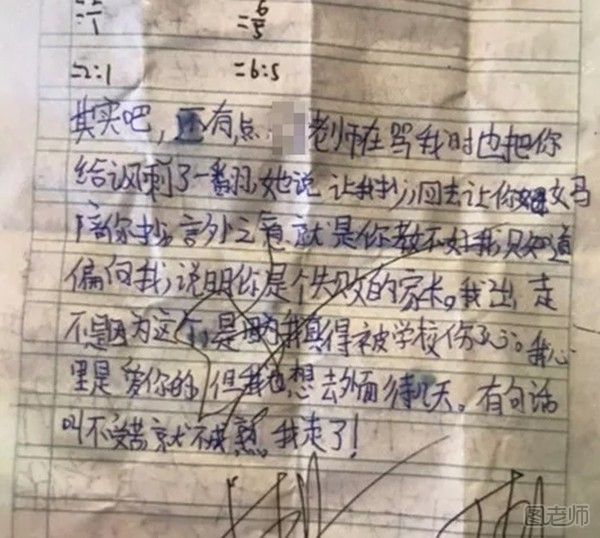 =6/5
=2:1 =6:5
其实吧，还有点 老师在骂我时也把你
给讽刺了一番，她说让我抄，回去让你妈
陪你抄，言外之意就是你教不好我只知道
偏向我，说明你是个失败的家长。我出走
不是因为这个，是因为我真得被学校伤了。我心
里是爱你的，但我也想去外面待几天。有句话
叫不受苦就不成熟。我走了！
图老师